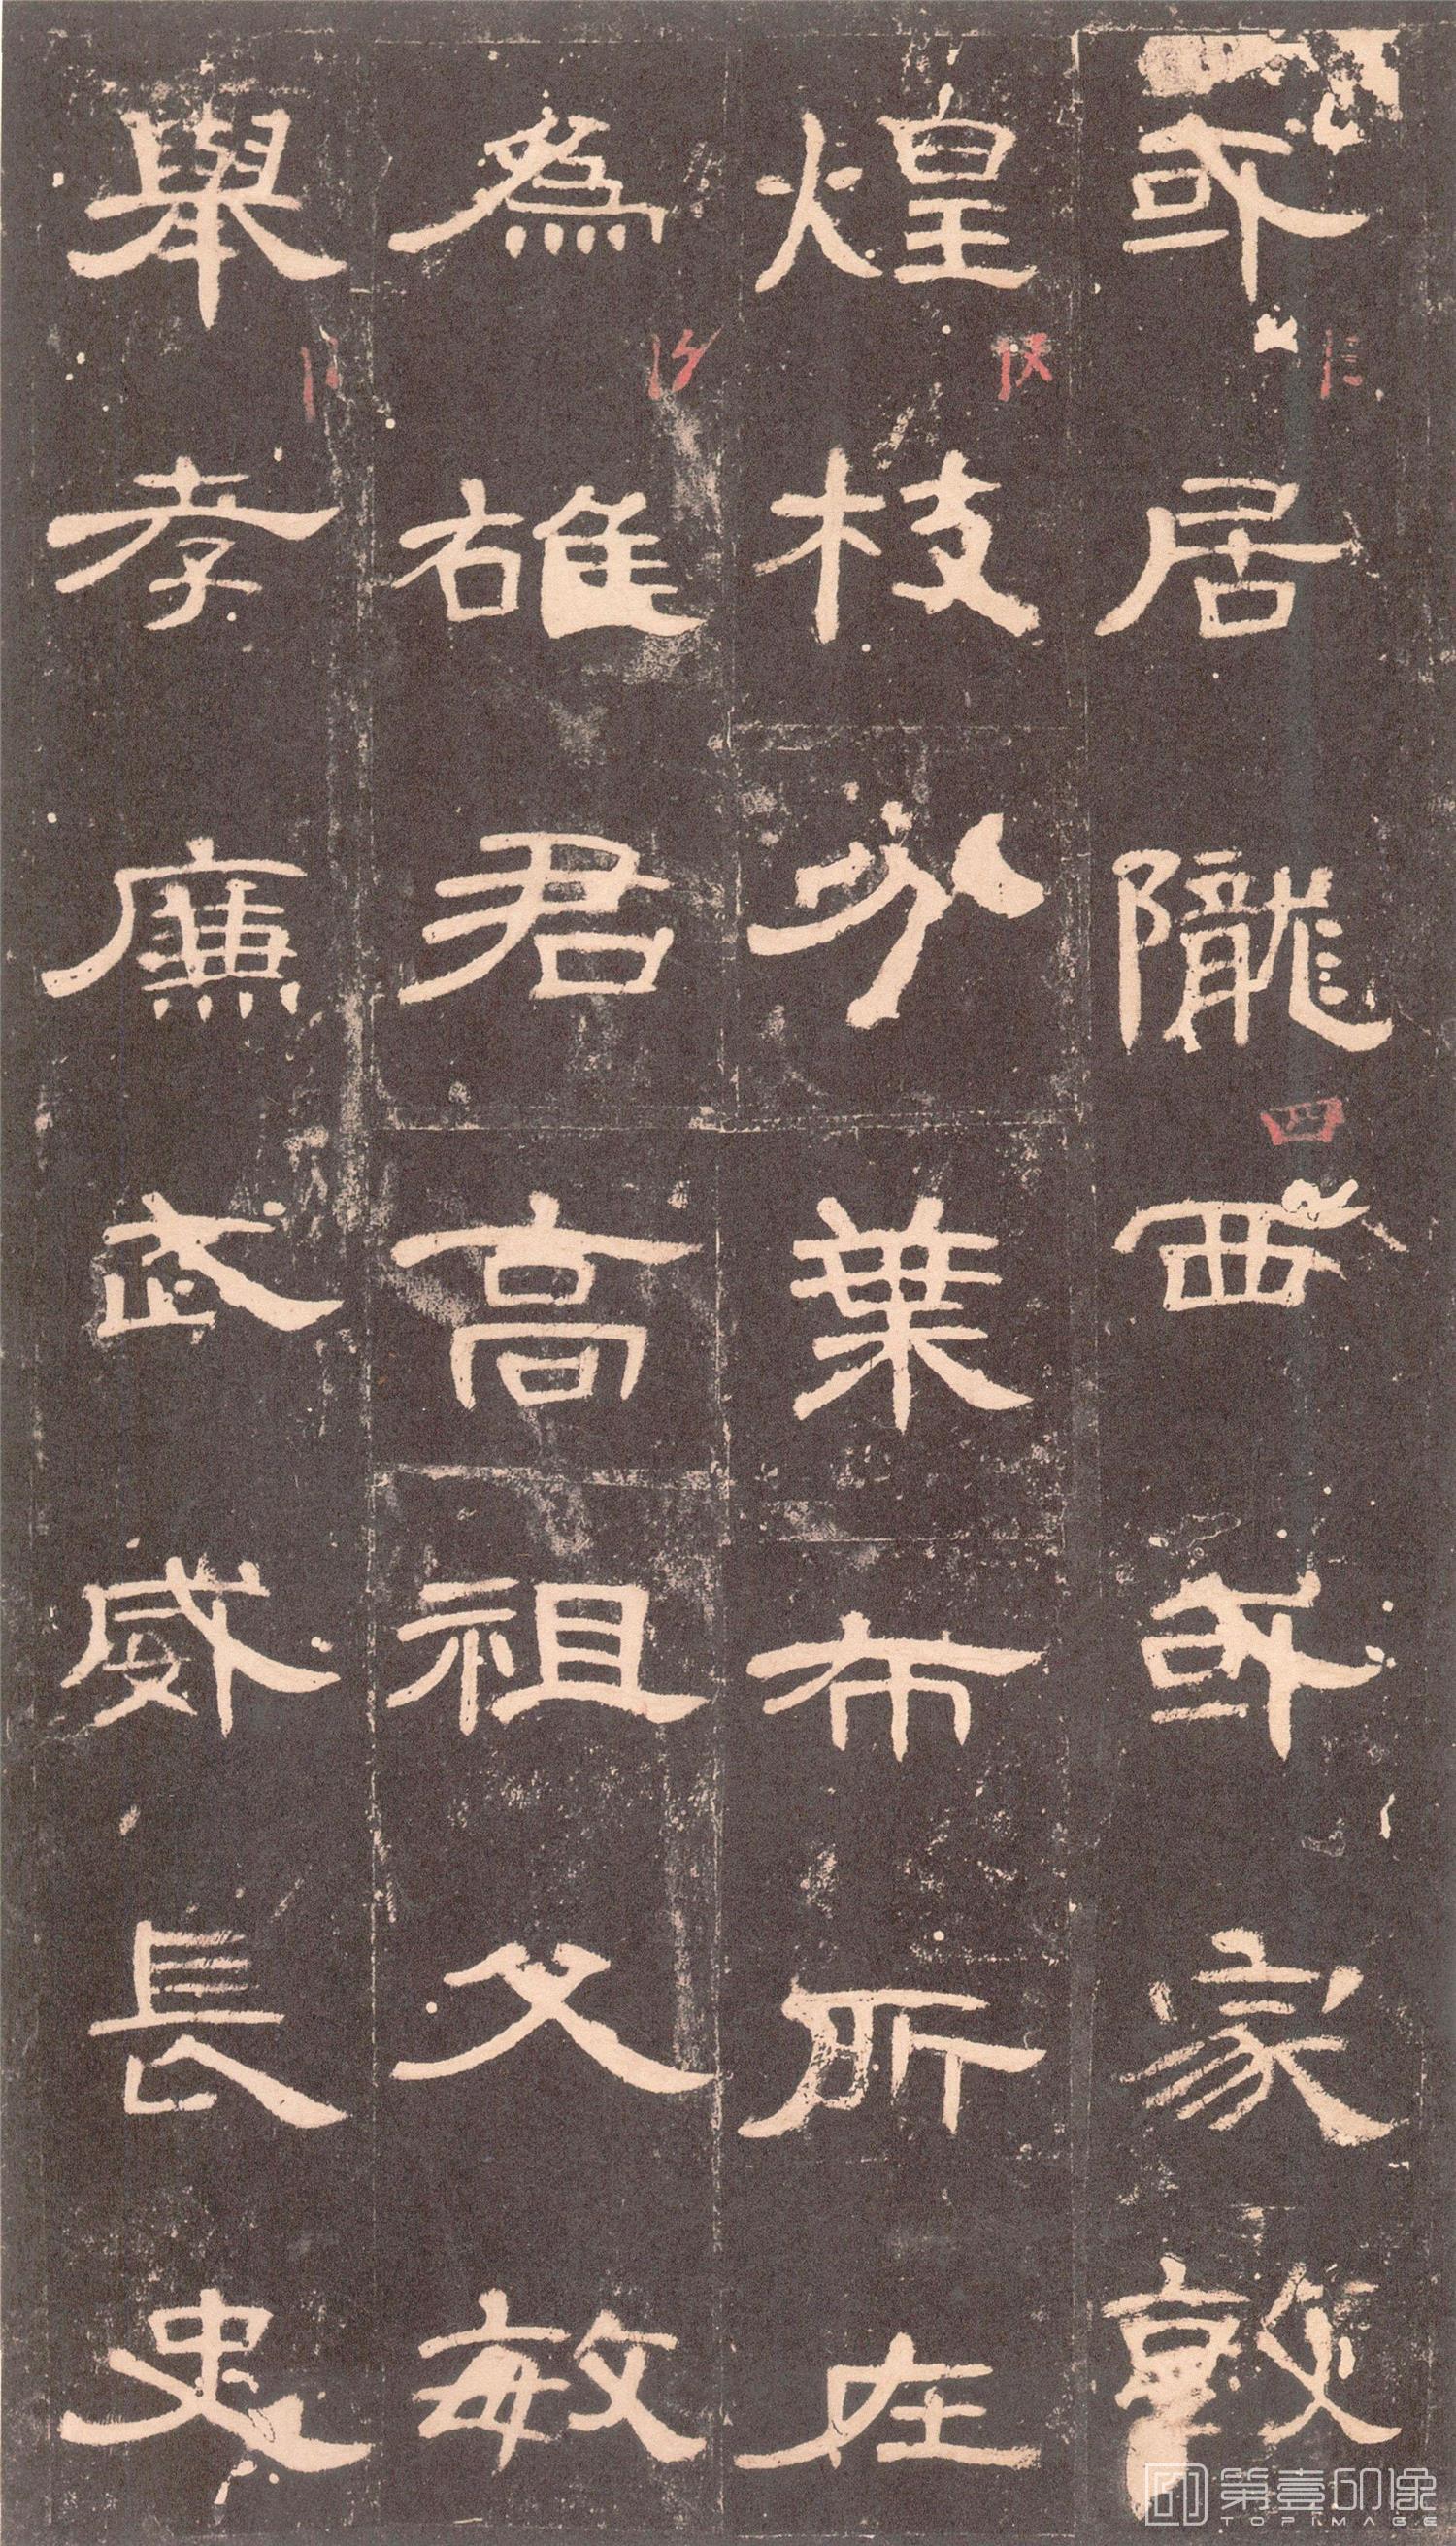 或居隴西或家敦
煌枝分葉布所在
為雄君高祖父敏
舉孝廉武威長史
四
第壹印像
TOPIMAGE